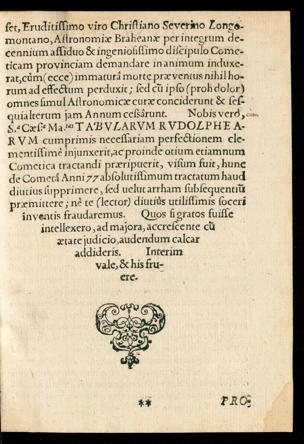 set, Eruditissimo viro Christiano Severino Longo-
montano, Astronomiæ Braheanæ per integrum de-
cennium assiduo & ingeniosissimo discipulo Come-
ticam provinciam demandare in animum induxe-
rat, cùm (ecce) immaturâ morte præventus nihil ho-
rum ad effectum perduxit; sed cū ipso (proh dolor)
omnes simul Astronomicæ curæ conciderunt & ses-
quialterum jam Annum cessârunt. Nobis verò,
S.æ Cæs.æ Ma.tas TABULARUM RUDOLPHEA-
RUM cumprimis necessariam perfectionem cle-
mentissimè injunxerit, ac proinde otium etiamnum
Cometica tractandi præripuerit, visum fuit, hunc
de Cometâ Anni 77 absolutissimum tractatum haud
diutius supprimere, sed veluti arrham subsequentiū
præmittere; nè te (lector) diutiùs utilissimis soceri
inventis fraudaremus. Quos si gratos fuisse
intellexero, ad majora, accrescente cū
ætate judicio, audendum calcar
addideris. Interim
vale, & his fru-
ere.
** PRO-